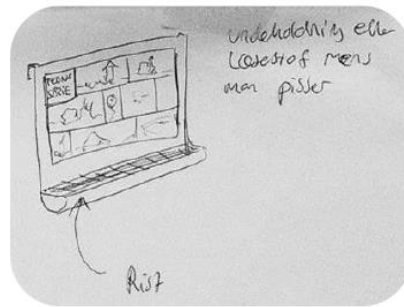 underholdning eller
læsestof mens
man pisser
TEGNE
SERIE
Rist